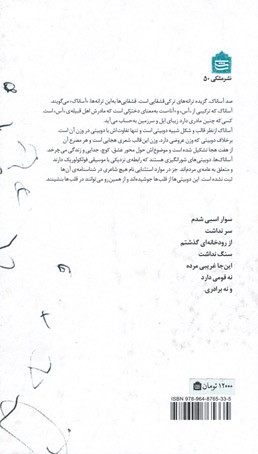 نشر مشکی ۵۰
صد آسانک، گزیده ترانه‌های ترکی قشقایی است. قشقایی‌ها به این ترانه‌ها، «آسانک» می‌گویند.
آسانک از نظر قالب و شکل شبیه دوبیتی است و تنها تفاوتش با دوبیتی در وزن آن است
برخلاف دوبیتی که وزن عروضی دارد، وزن این قالب شعری هجایی است و هر مصرع آن
از هفت هجا تشکیل شده است و موضوع‌اش حول محور عشق، کوچ، جدایی و زندگی می‌چرخد
آسانک‌ها، دوبیتی‌های شورانگیزی هستند که رابطه‌ی نزدیکی با موسیقی فولکلوریک دارند
و متعلق به عامه‌ی مردم‌اند. جز در موارد استثنایی نام هیچ شاعری در شناسنامه‌ی آن‌ها
ثبت نشده است. این دوبیتی‌ها از قلب‌ها جوشیده‌اند و از همین، و می‌توانند در قلب‌ها بنشینند.
سوار اسبی شدم
سر نداشت
از رودخانه‌ای گذشتم
سنگ نداشت
این‌جا غریبی مرده
نه قومی دارد
و نه برادری.
ISBN 978-964-8765-33-5
۱۲۰۰۰ تومان